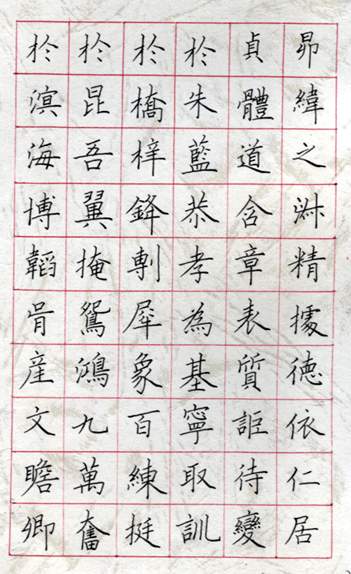 昴緯之淑精據德依仁居
貞體道含章表質詎待變
於朱藍恭孝為基寧取訓
於橋梓鋒剸犀象百練挺
於昆吾翼掩鴛鴻九萬奮
於溟海博韜胥産文瞻卿